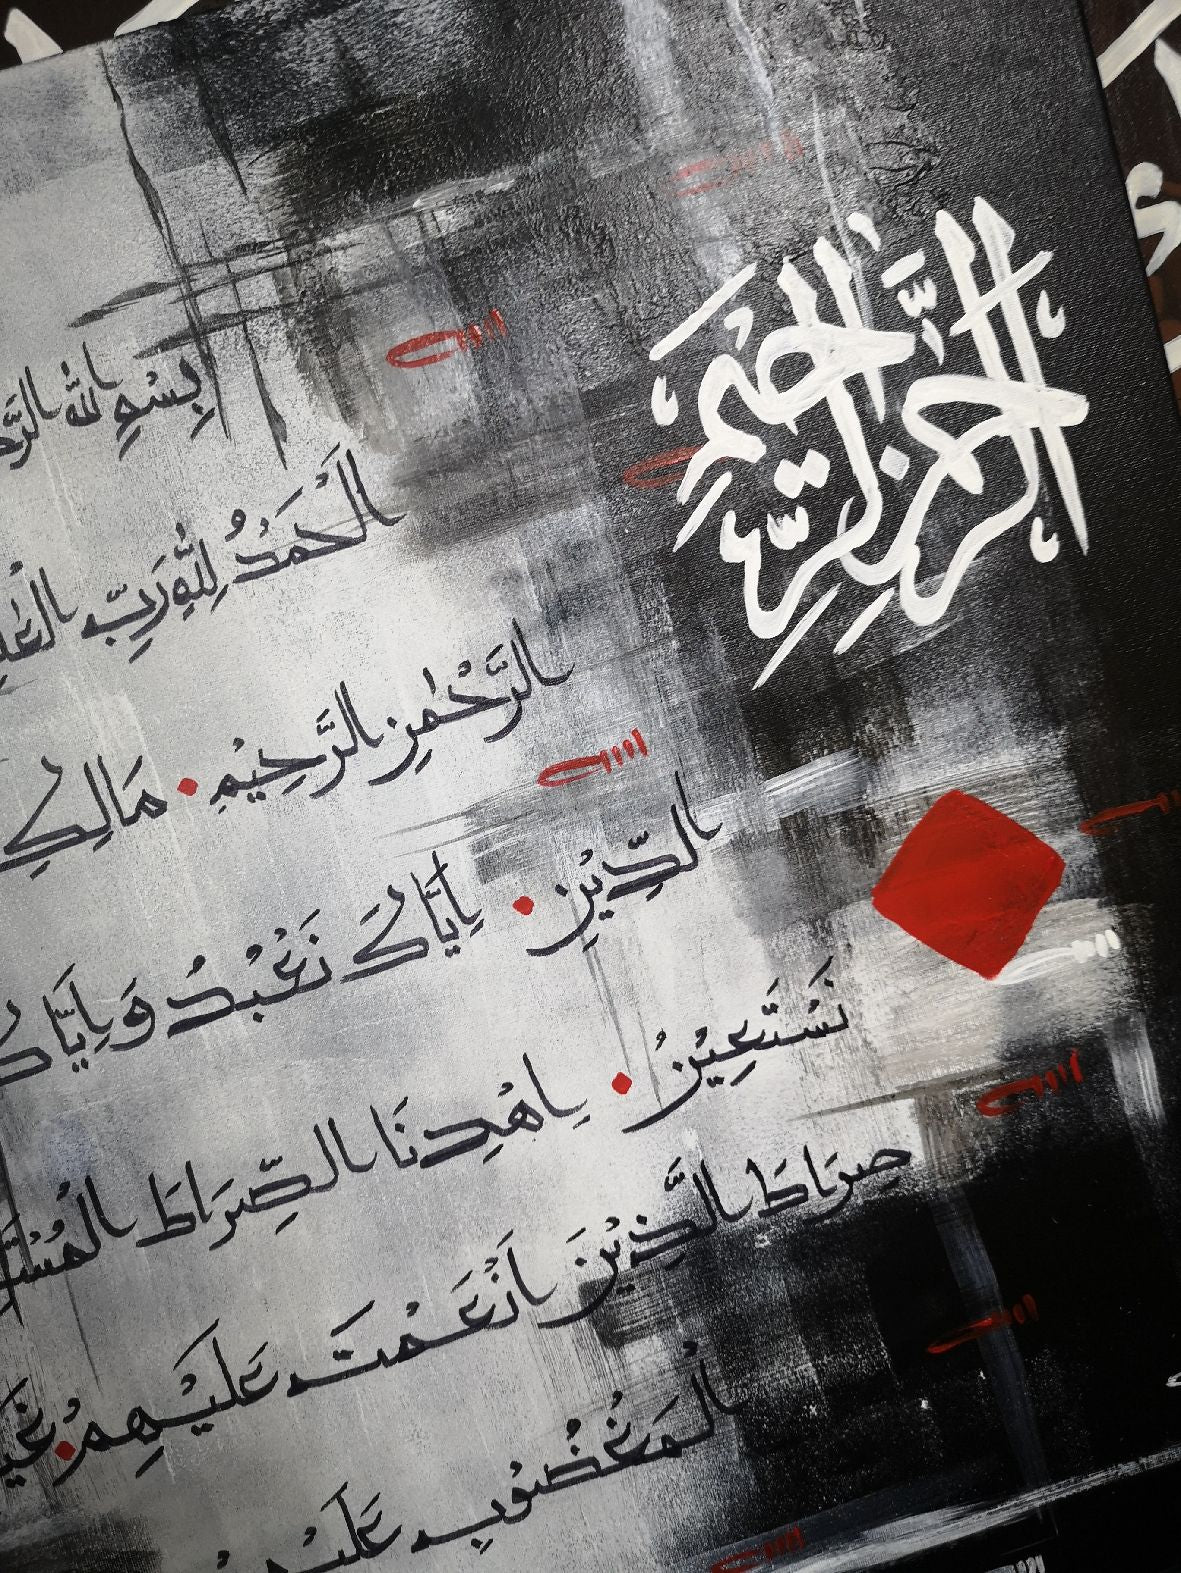 الرحمن الرحيم
بِسْمِ اللّٰهِ
الْحَمْدُ لِلّٰهِ رَبِّ
الرَّحْمٰنِ الرَّحِيْمِ • مَالِكِ
الدِّيْنِ • اِيَّاكَ نَعْبُدُ وَاِيَّاكَ
نَسْتَعِيْنُ • اِهْدِنَا الصِّرَاطَ
صِرَاطَ الَّذِيْنَ اَنْعَمْتَ عَلَيْهِمْ
الْمَغْضُوْبِ عَلَيْهِمْ